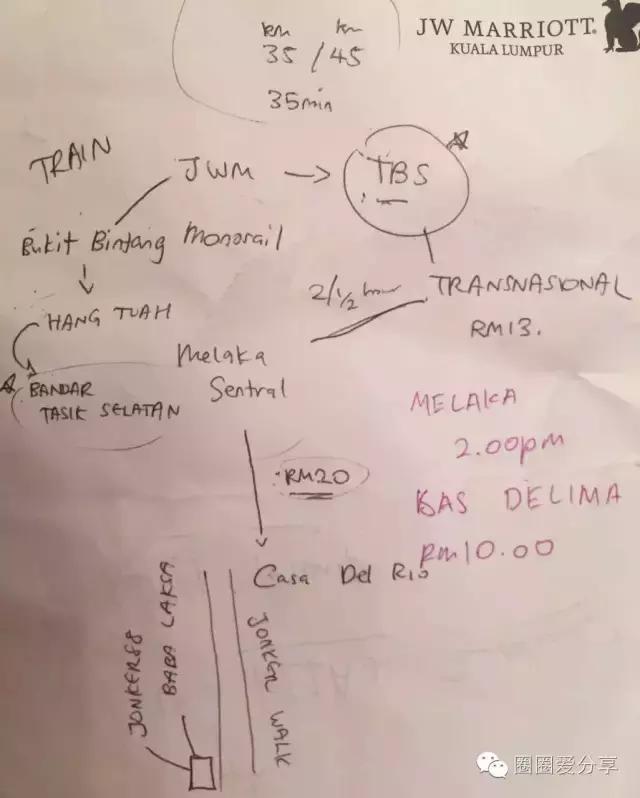 JW MARRIOTT®
KUALA LUMPUR
km km
35 / 45
35min
TRAIN
JWM → TBS
Bukit Bintang Monorail
2/1/2 hour
TRANSNASIONAL
RM13.
HANG TUAH
Melaka
Sentral
BANDAR
TASIK SELATAN
MELAKA
2.00pm
BAS DELIMA
RM10.00
RM20
Casa Del Rio
JONKER WALK
JONKER88
BABA LAKSA
圈圈爱分享